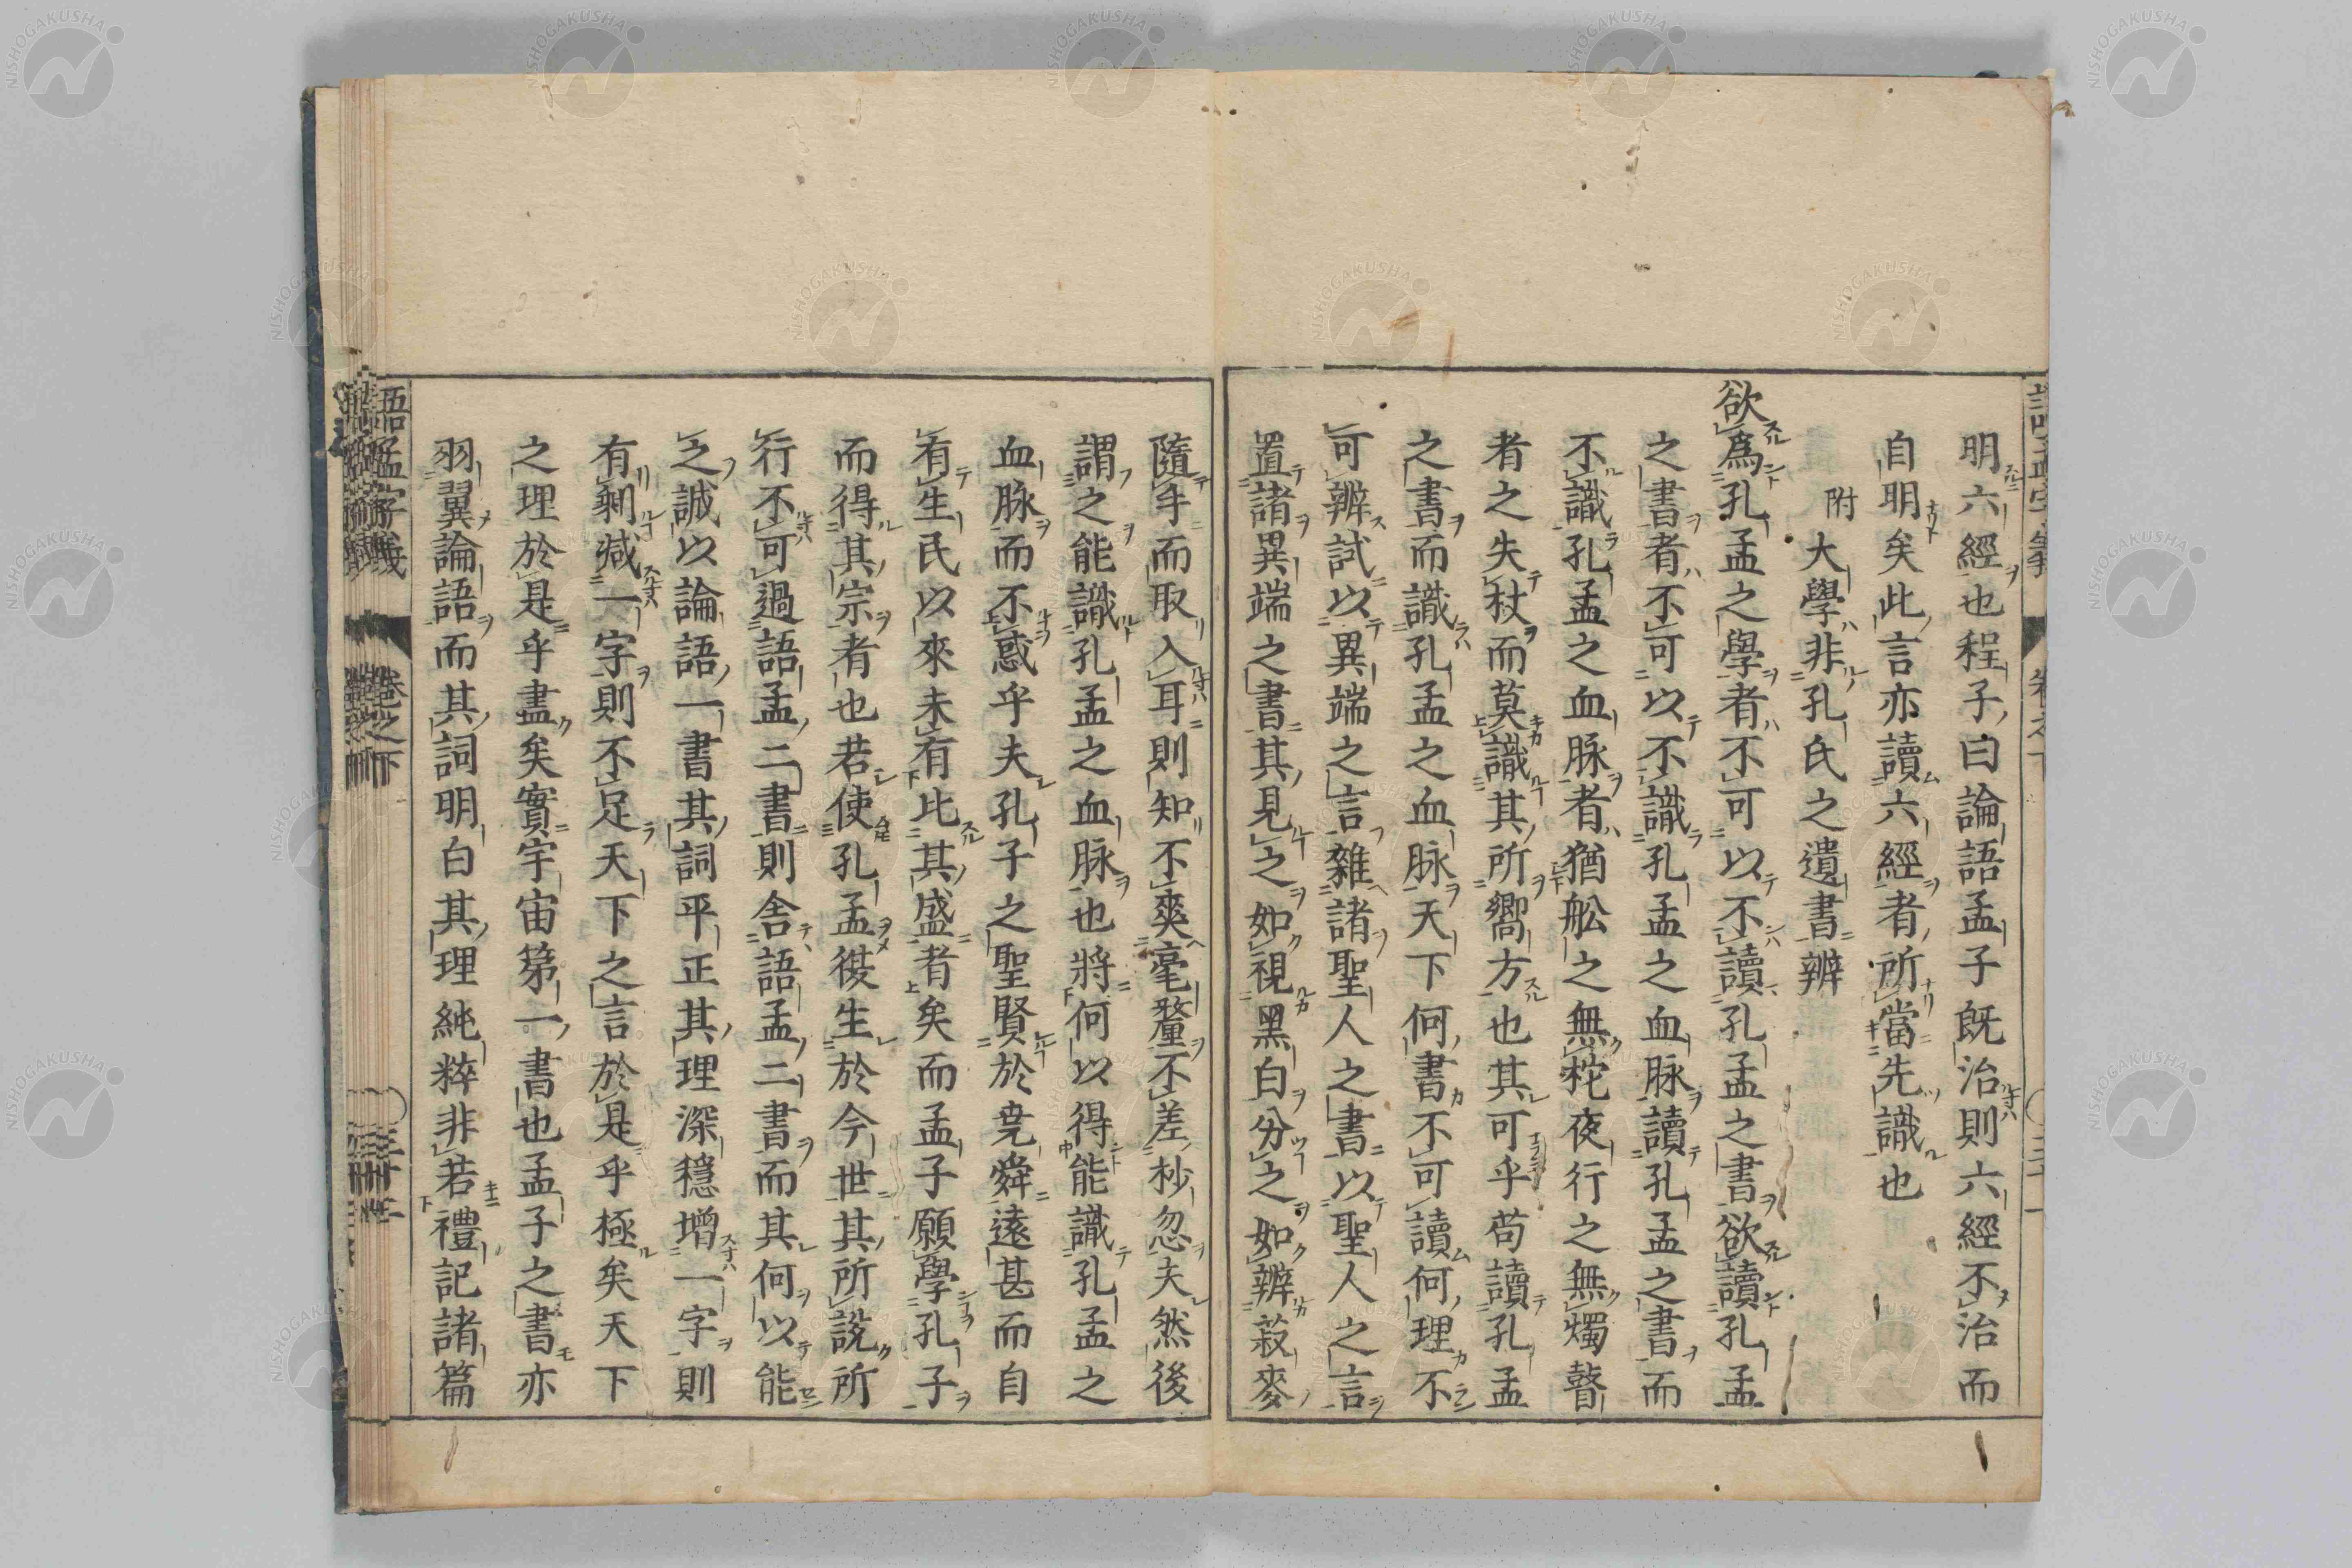 明六經也程子曰論語孟子既治則六經不治而
自明矣此言亦讀六經者所當先識也
附大學非孔氏之遺書辨
欲爲孔孟之學者不可以不讀孔孟之書欲讀孔孟
之書者不可以不識孔孟之血脉讀孔孟之書而
不識孔孟之血脉者猶舩之無柁夜行之無燭瞽
者之失杖而莫識其所嚮方也其可乎苟讀孔孟
之書而識孔孟之血脉天下何書不可讀何理不
可辨試以異端之言雜諸聖人之書以聖人之言
置諸異端之書其見之如視黑白分之如辨菽麥
隨手而取入耳則知不爽毫釐不差杪忽夫然後
謂之能識孔孟之血脉也將何以得能識孔孟之
血脉而不惑乎夫孔子之聖賢於尭舜遠甚而自
有生民以來未有比其盛者矣而孟子願學孔子
而得其宗者也若使孔孟復生於今世其所說所
行不可過語孟二書則舎語孟二書而其何以能
之誠以論語一書其詞平正其理深穩增一字則
有剩减一字則不足天下之言於是乎極矣天下
之理於是乎盡矣實宇宙第一書也孟子之書亦
羽翼論語而其詞明白其理純粹非若禮記諸篇
語孟字義 卷之下